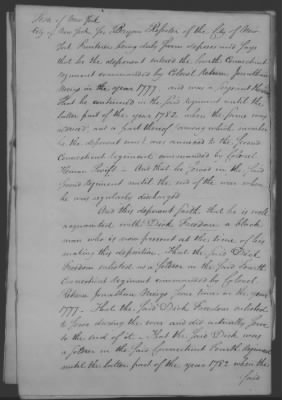 State of New York
City of New York. ss. Bryan Rossiter of the City of New
York being duly sworn deposes and says
that he the deponent entered the fourth Connecticut
regiment commanded by Colonel Return Jonathan
Meigs in the year 1777. and was a Sergeant therein
that he continued in the said regiment until the
latter part of the year 1782. when the same was
and a part thereof (among which number
he the deponent was) was annexed to the Second
Connecticut regiment commanded by Colonel
Heman Swift – And that he served in the said
Second Regiment until the end of the war when
he was regularly discharged
And this deponent saith that he is well
acquainted with Dick Freedom a black
man who is now present at the time of his
making this deposition. That the said Dick
Freedom enlisted as a soldier in the said fourth
Connecticut Regiment commanded by Colonel
Return Jonathan Meigs some time in the year
1777. That the said Dick Freedom enlisted
to serve during the war and did actually serve
to the end of it – That the said Dick was
a soldier in the said Connecticut Fourth Regiment
until the latter part of the year 1782 when the
said